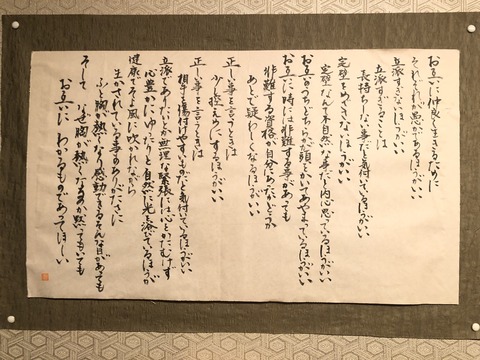 お互いに仲良く生きるために
それぞれが愚かであるほうがいい
立派すぎないほうがいい
立派すぎることは
長持ちしない事だと気付いているほうがいい
完璧をめざさないほうがいい
完璧なんて不自然な事だと内心思っているほうがいい
お互いのどちらかが頭をかいてあやまっているほうがいい
お互いに時には非難する事があても
非難する資格が自分にあるかどうか
あとで疑わしくなるほうがいい
正しい事を言うときは
少し控えめにするほうがいい
正しい事を言うときは
相手を傷付けやすいものだと気付いているほうがいい
立派でありたいとか無理な緊張には心をかたむけず
心豊かにゆったりと自然に光を浴びているほうが
健康でそよ風に吹かれながら
生かされている事のありがたさに
ふと胸が熱くなり感動できるそんな日があても
そして なぜ胸が熱くなるのか黙っていても
お互いに わかるものであってほしい